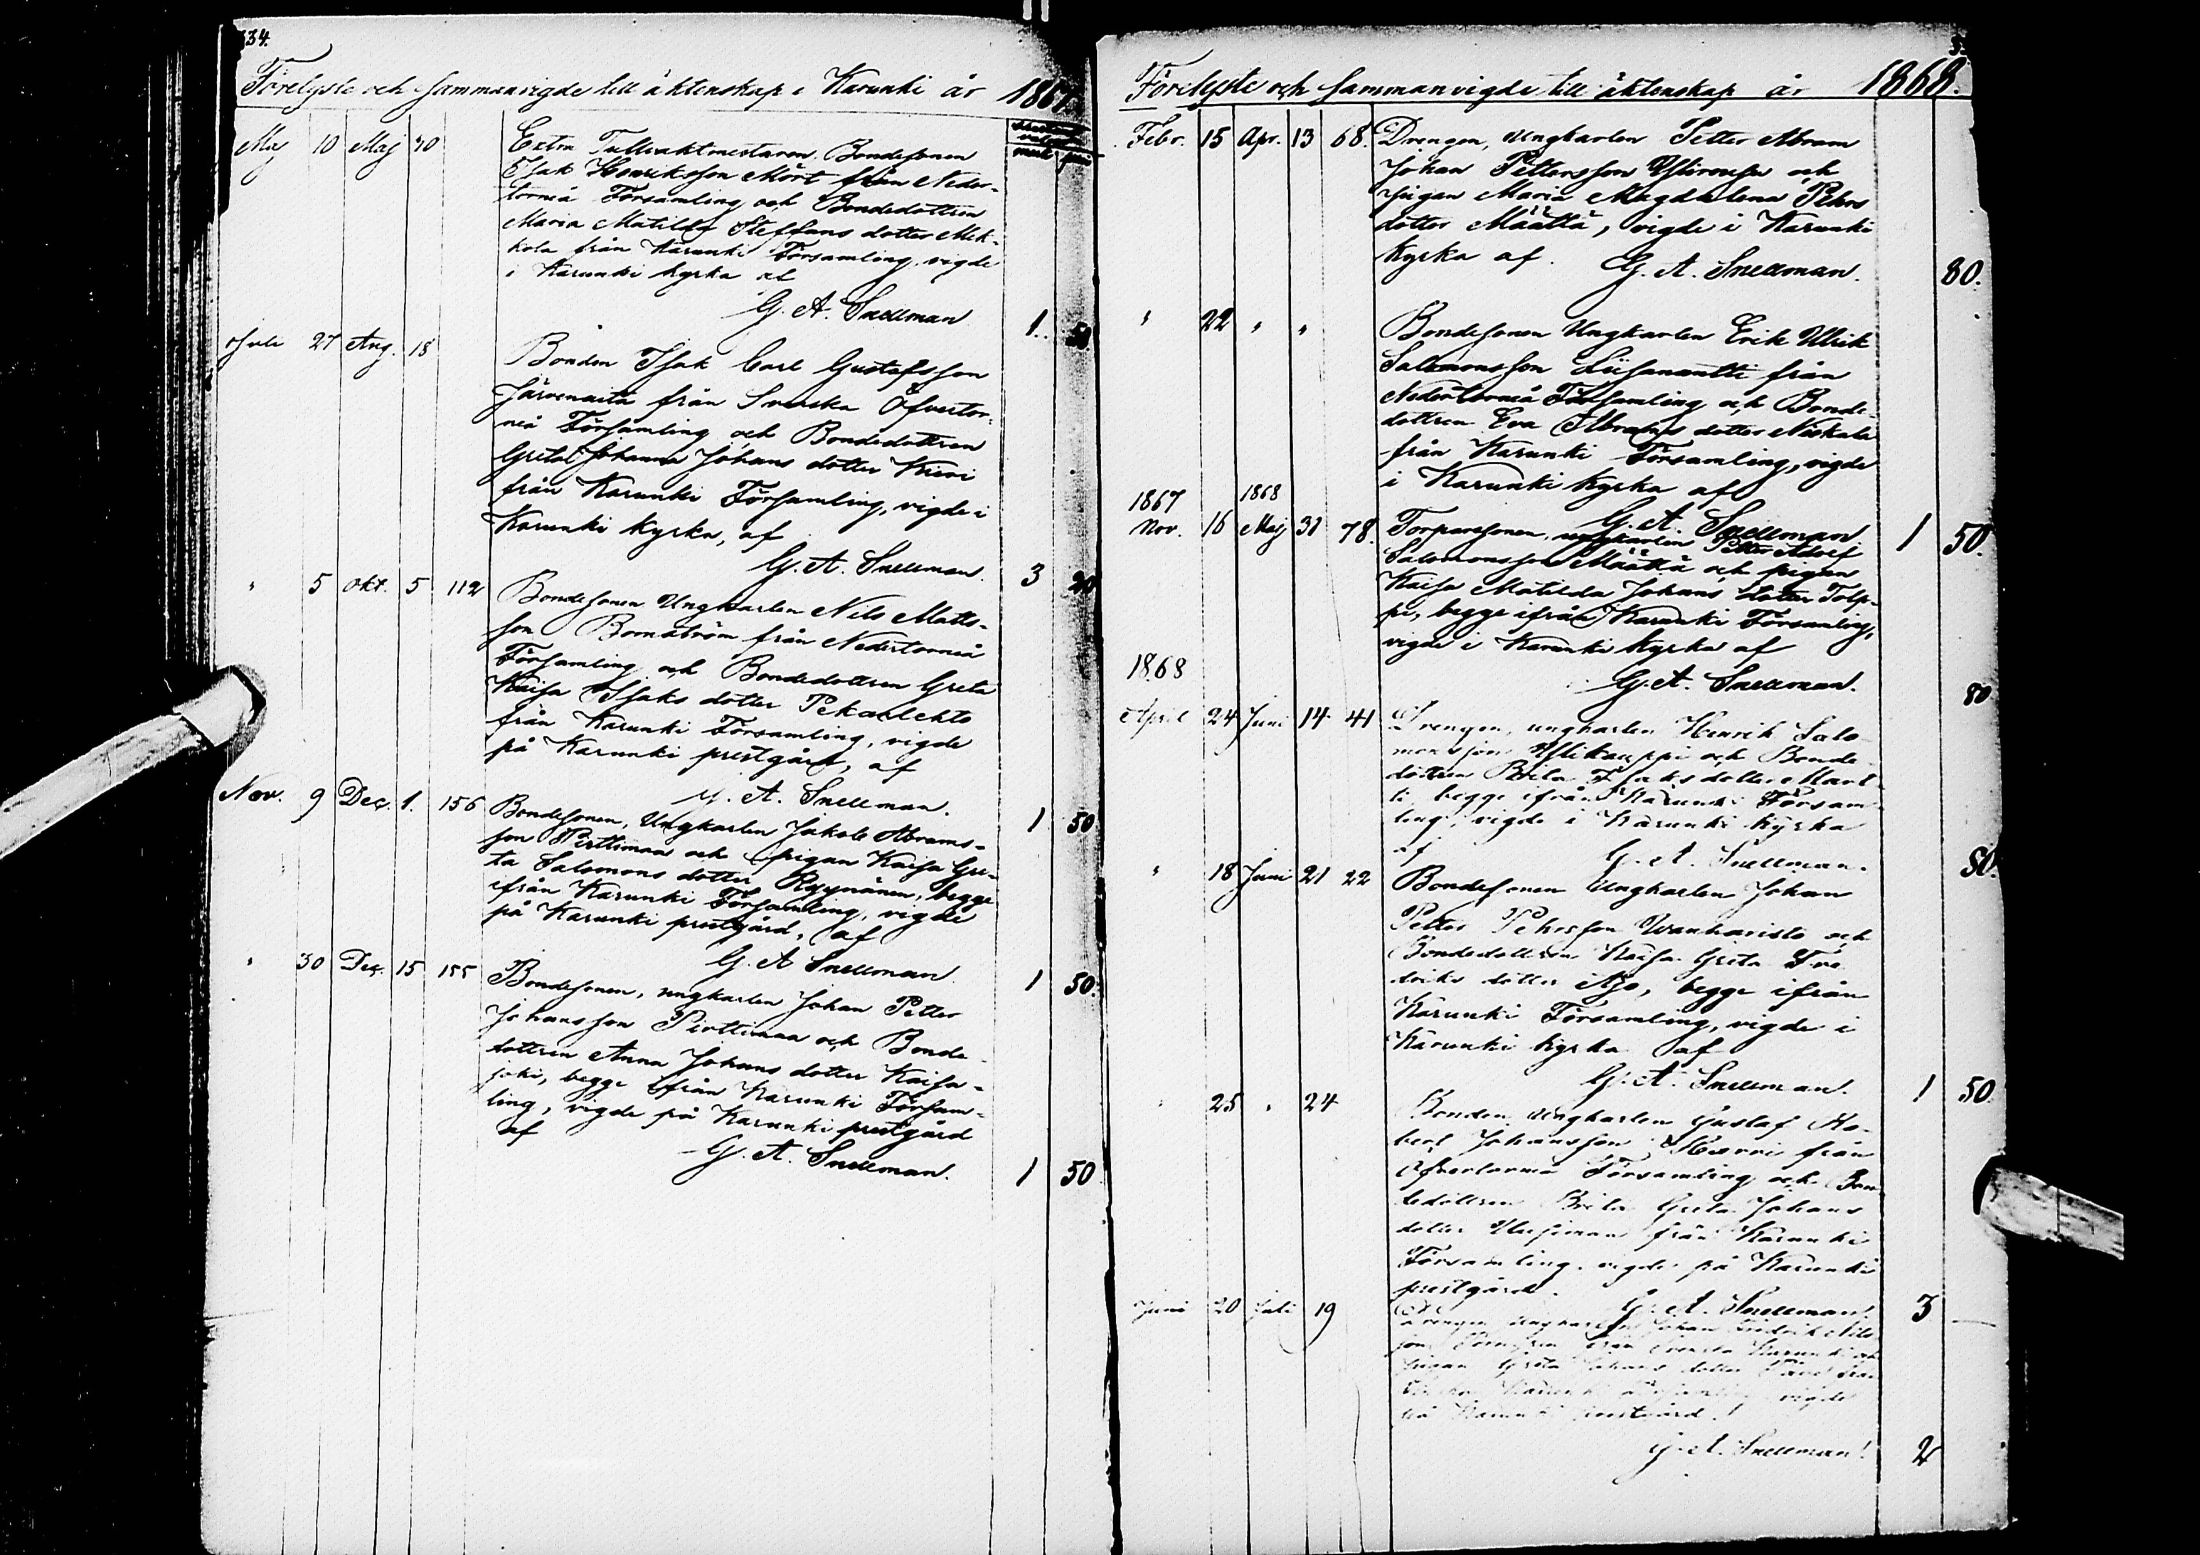 334.
Förelyste och sammanvigde till äktenskap i Karunki år 1867.
mark pni
Maj 10 Maj 30 Extra Tullvaktmestaren Bondesonen
Isak Henriksson Mört från Neder-
torneå Församling och Bondedottren
Maria Matilda Steffans dotter Mek-
kola från Karunki Församling, vigde
i Karunki kyrka af
G. A. Snellman 1. 50.
Juli 27 Aug. 18 Bonden Isak Carl Gustafsson
Järvenaita från Svenska Öfvertor-
neå Församling och Bondedottren
Greta Johanna Johans dotter Kieri
från Karunki Församling, vigde i
Karunki kyrka, af
G. A. Snellman. 3 20
" 5 Okt. 5 112 Bondesonen Ungkarlen Nils Matts-
son Bomström från Nedertorneå
Församling och Bondedottren Greta
Kaisa Isaks dotter Pekanlehto
från Karunki Församling, vigde
på Karunki prestgård, af
G. A. Snellman. 1 50
Nov. 9 Dec. 1. 156 Bondesonen, Ungkarlen Jakob Abrams-
son Pirttimaa och pigan Kaisa Gre-
ta Salomons dotter Ryynänen, begge
ifrån Karunki Församling, vigde
på Karunki prestgård, af
G. A Snellman 1 50.
" 30 Dec. 15 155 Bondesonen, ungkarlen Johan Petter
Johansson Pirttimaa och Bonde-
dottren Anna Johans dotter Kaisa-
joki, begge ifrån Karunki Försam-
ling, vigde på Karunki prestgård
af
G. A. Snellman. 1 50
Förelyste och sammanvigde till äktenskap år 1868.
Febr. 15 Apr. 13 68. Drengen, ungkarlen Petter Abram
Johan Pettersson Ylirousu och
pigan Maria Magdalena Pehrs
dotter Määttä, vigde i Karunki
kyrka af. G. A. Snellman. 80.
" 22 " " Bondesonen Ungkarlen Erik Ulrik
Salomonsson Liisanantti från
Nedertorneå Församling och Bonde-
dottren Eva Abrams dotter Niskala
från Karunki Församling, vigde
i Karunki kyrka af
G. A. Snellman 1 50.
1867 1868
Nov. 16 Maj 31 78. Torparesonen, ungkarlen Petter Adolf
Salomonsson Määttä och pigan
Kaisa Matilda Johans dotter Tolp-
pi, begge ifrån Karunki Församling,
vigde i Karunki kyrka af
G. A. Snellman. 80
1868
April 24 Juni 14 41 Drengen, ungkarlen Henrik Salo-
monsson Ylikauppi och Bonde-
dottren Brita Isaks dotter Mart-
ti begge ifrån Karunki Försam-
ling, vigde i Karunki kyrka
af G. A. Snellman. 80.
" 18 Juni 21 22 Bondesonen Ungkarlen Johan
Petter Pehrsson Wanharisto och
Bondedottren Kaisa Greta Fre-
driks dotter Ajo, begge ifrån
Karunki Församling, vigde i
Karunki kyrka af
G. A. Snellman. 1 50.
" 25 " 24 Bonden ungkarlen Gustaf Ho-
bert Johansson från
Öfvertorneå Församling och Bon-
dedottren Brita Greta Johans
dotter från Karunki
Församling, vigde på Karunki
prestgård. G. A. Snellman! 3
Juni 20 Juli 19 Drengen ungkarlen Johan Fredrik Nils-
son från Svenska Karunki och
pigan Greta Johans dotter
Karunki Församling, vigde
på Karunki prestgård.
G. A. Snellman! 2